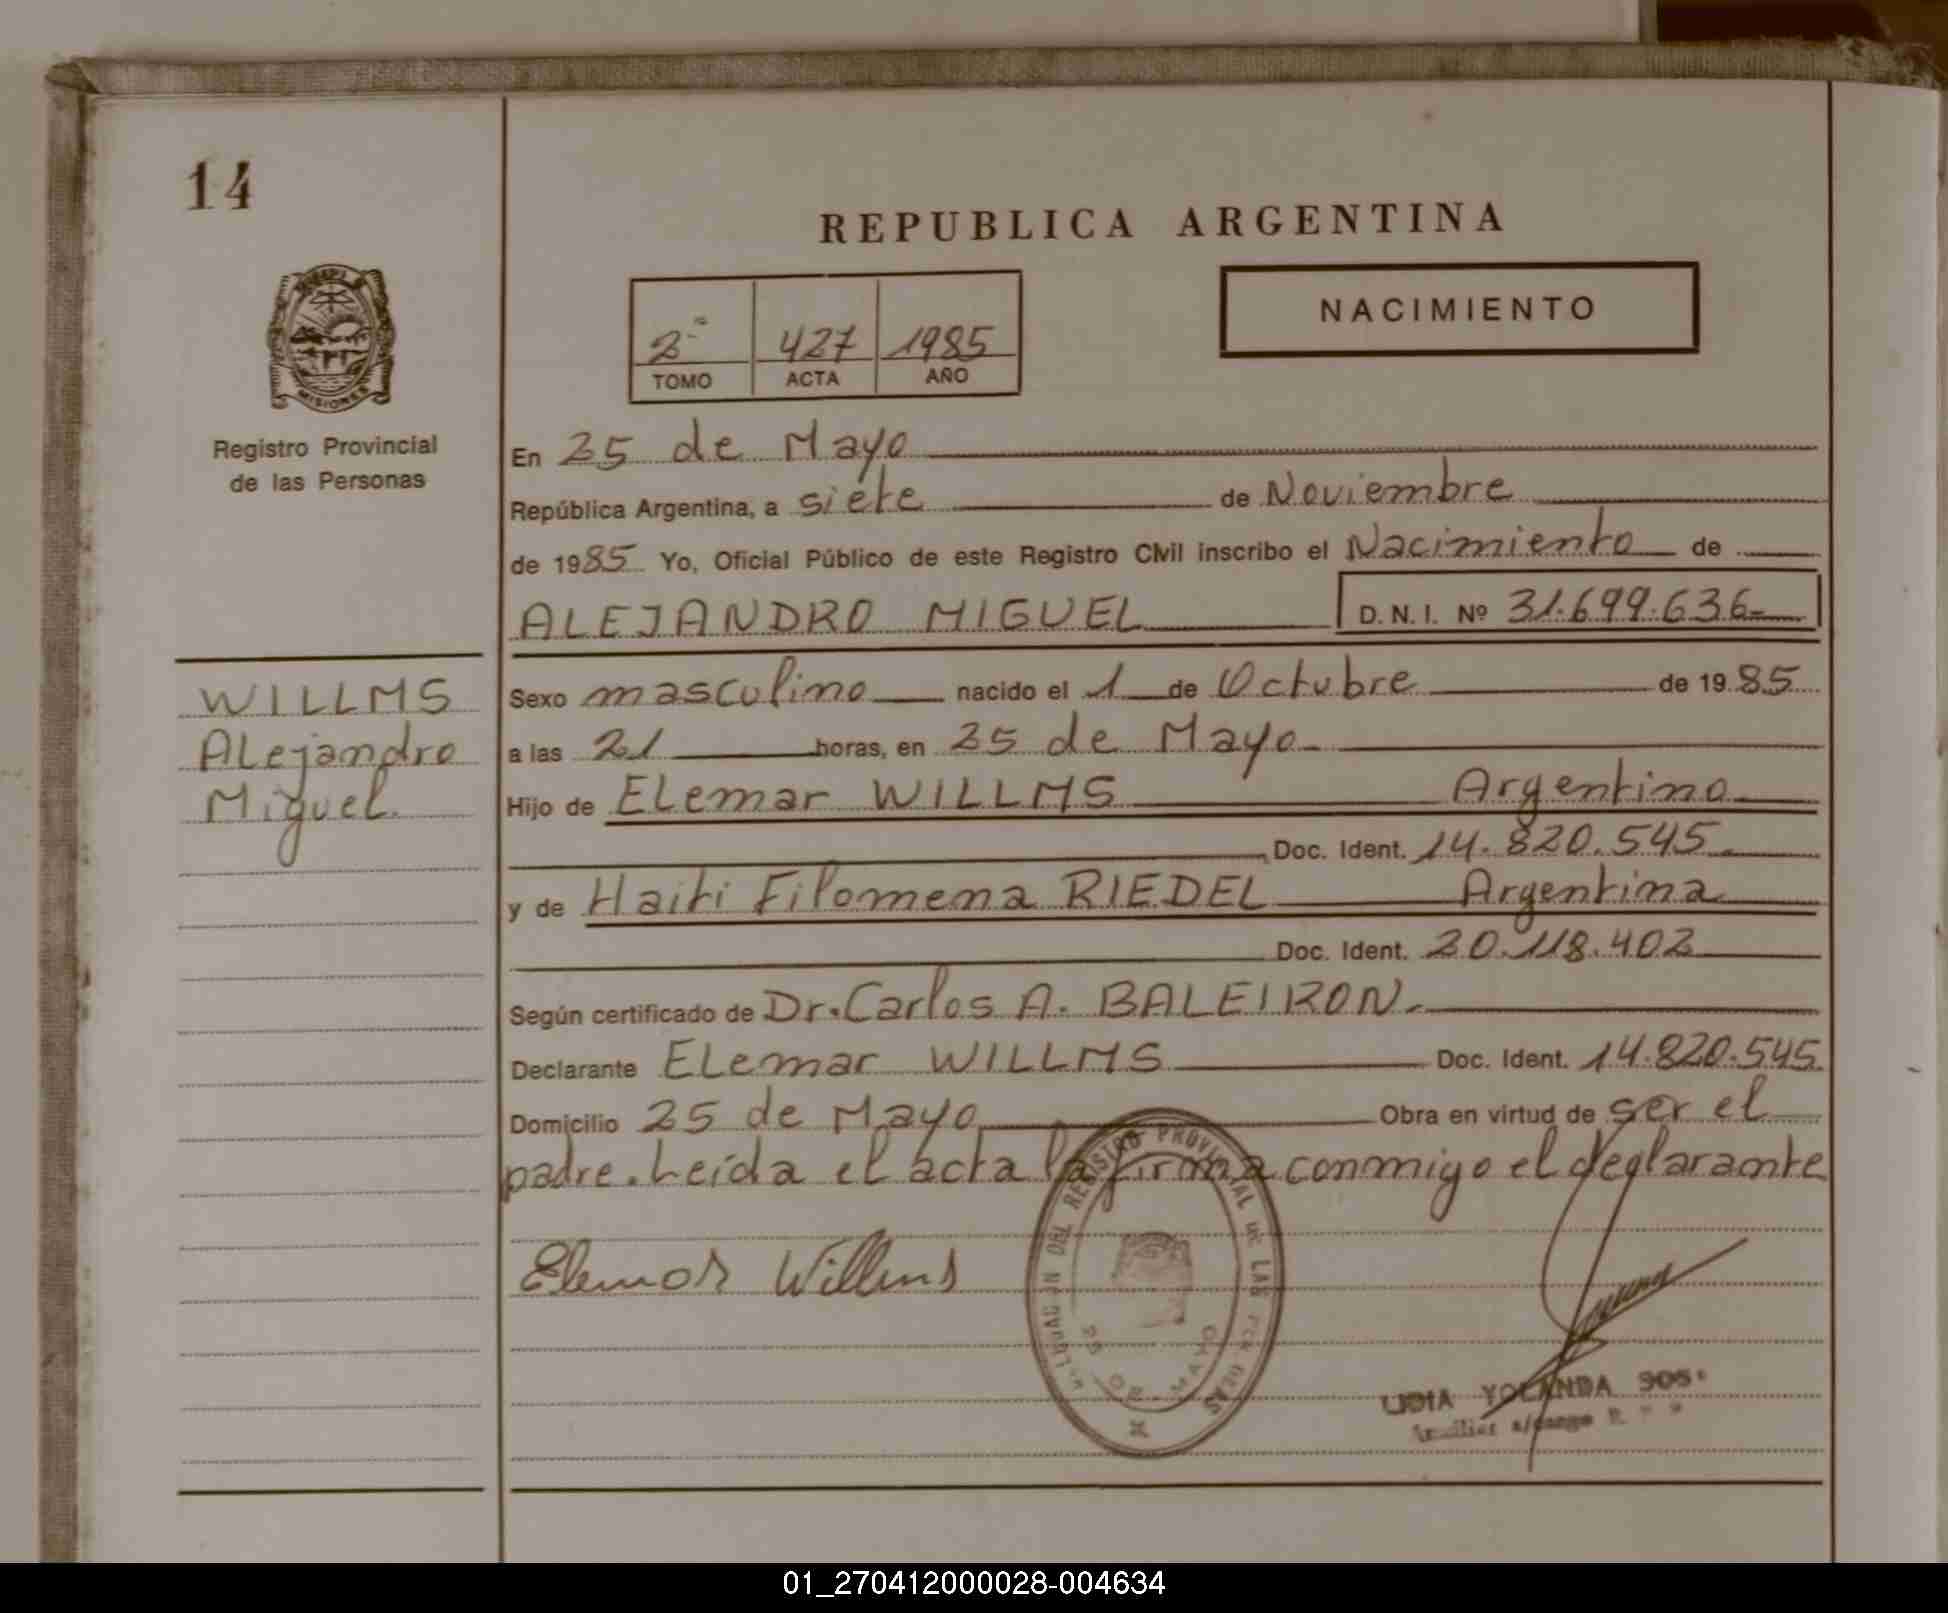 14
REPUBLICA ARGENTINA
NACIMIENTO
2º 427 1985
TOMO ACTA AÑO
MISIONES
Registro Provincial
de las Personas
En 25 de Mayo
República Argentina, a siete de Noviembre
de 1985 Yo, Oficial Público de este Registro Civil inscribo el Nacimiento de
ALEJANDRO MIGUEL D.N.I. Nº 31.699.636
WILLMS
Alejandro
Miguel.
Sexo masculino nacido el 1 de Octubre de 1985
a las 21 horas, en 25 de Mayo
Hijo de Elemar WILLMS Argentino
Doc. Ident. 14.820.545
y de Haiti Filomena RIEDEL Argentina
Doc. Ident. 20.118.402
Según certificado de Dr. Carlos A. BALEIRON.
Declarante Elemar WILLMS Doc. Ident. 14.820.545
Domicilio 25 de Mayo Obra en virtud de ser el
padre. Leída el acta la firma conmigo el declarante
Elemar Willms
DEL REGISTRO PROVINCIAL DE LAS PERSONAS
25 DE MAYO
LIDIA YOLANDA
a/cargo
01_270412000028-004634